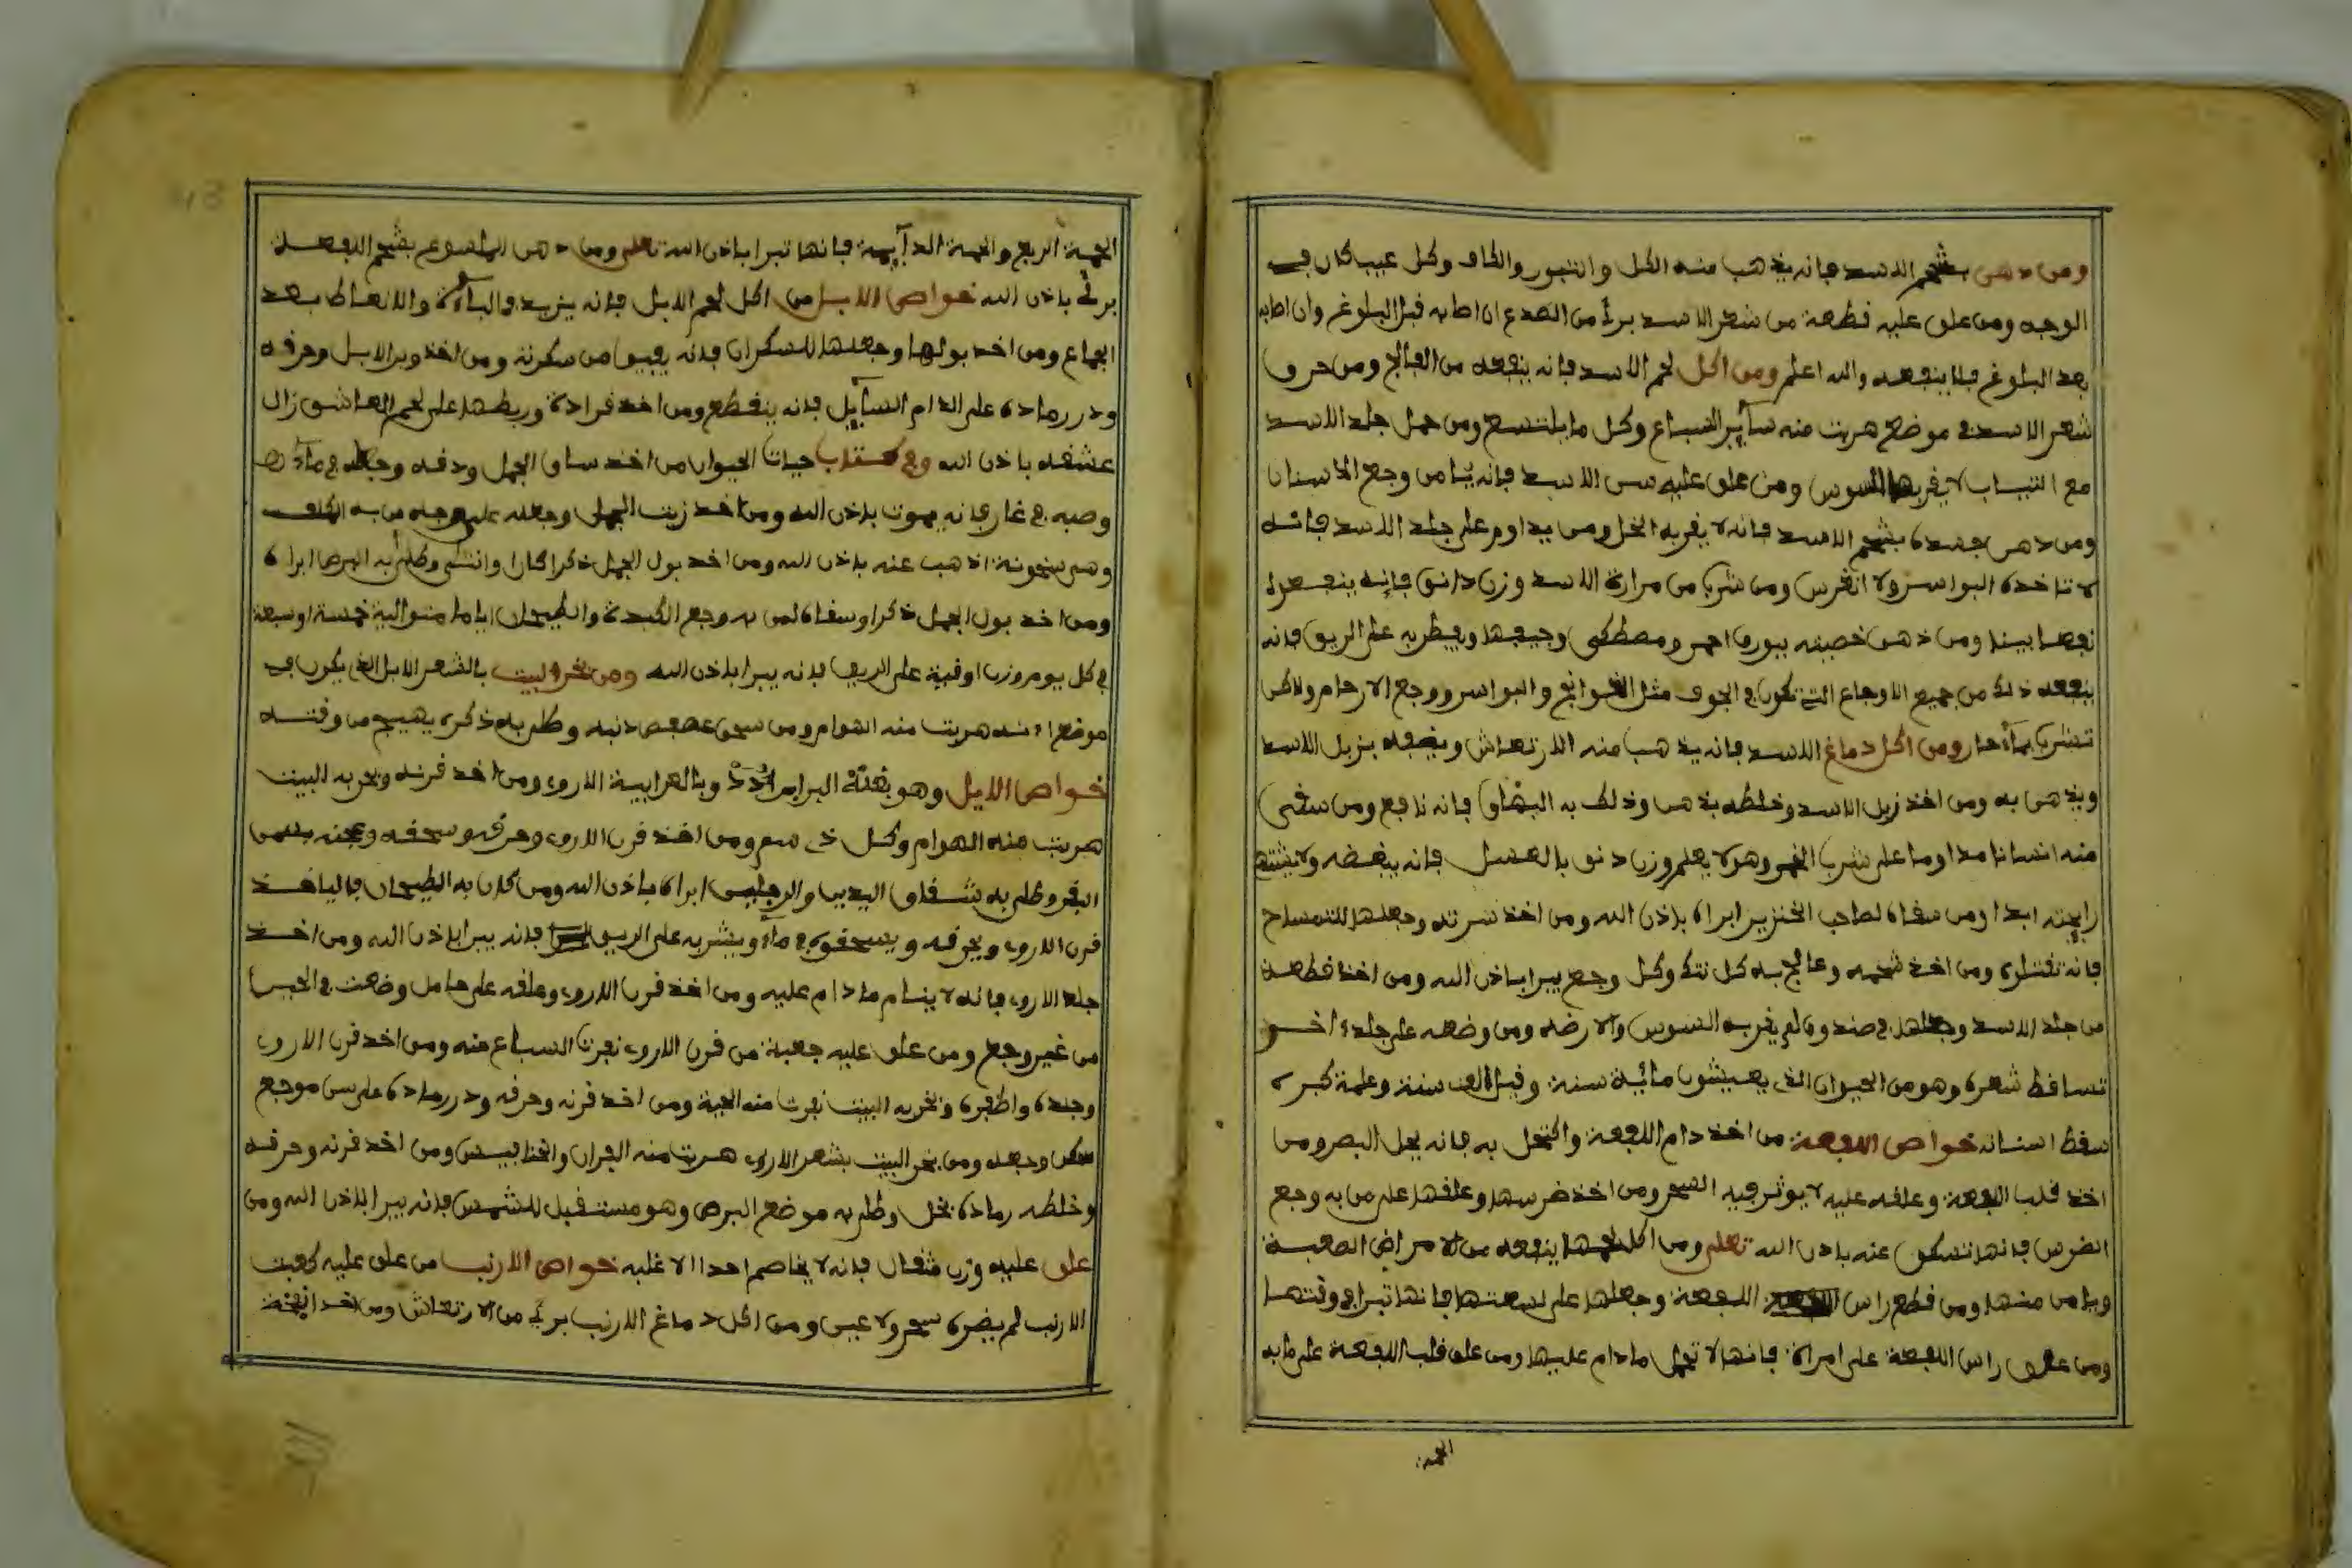 ومن دهن بشحم الاسد فانه يذهب منه الكلل والنبور والكلف وكل عيب كان في
الوجه ومن علق عليه قطعة من شعر الاسد برئ من الصدع ان اصابه قبل البلوغ وان اصابه
بعد البلوغ فلا ينفعه والله اعلم ومن اكل لحم الاسد فانه ينفعه من الفالج ومن حرق
شعر الاسد في موضع هربت منه سآير السباع وكل ما يلتسع ومن جمل جلد الاسد
مع الثياب لا يقربها السوس ومن علق عليه سن الاسد فانه يامن وجع الاسنان
ومن دهن جسده بشحم الاسد فانه لا يقربه النحل ومن يداوم على جلد الاسد فانه
لا تاخذه البواسر ولا النقرس ومن شرب من مرارة الاسد وزن دانق فإنه ينفعه
نفعا بينا ومن دهن خصيته ببورق احمر ومصطكى وجففها ويفطر به على الريق فانه
ينفعه ذلك من جميع الاوجاع التي تكون في الجوف مثل القوانج والبواسر ووجع الارحام ولاكن
تشرب بمآء حار ومن اكل دماغ الاسد فانه يذهب منه الارتعاش وينفعه بزبل الاسد
ويذهن به ومن اخذ زبل الاسد وخلطه بذهن وذلك به البهاق فانه نافع ومن سقى
منه انسانا مداوما على شرب الخمر وهو لا يعلم وزن دنق بالعسل فانه يبغضه ولا يشته
رايحته ابدا ومن سقاه لصاحب الخنزير ابراه باذن الله ومن اخذ سرته وجعلها للتمساح
فانه تقتله ومن اخذ شحمه وعالج به كل نتك وكل وجع يبرا باذن الله ومن اخذ قطعة
من جلد الاسد وجعلها في صندوق لم يقربه السوس والارضه ومن وضعه على جلد اخر
تساقط شعره وهو من الحيوان الذي يعيشون مائية سنة وقيل الف سنة وعلمة كبره
سقط اسنانه خواص اللفعة من اخذ دام اللفعة واكتحل به فانه يحل البصر ومن
اخذ قلب اللفعة وعلقه عليه لا يوثر فيه السحر ومن اخذ ضرسها وعلقها على من به وجع
الضرس فانها تسكن عنه باذن الله تعلى ومن اكل لحمها ينفعه من الامراض الصعبة
ويامن منها ومن قطع راس اللفعة وجعلها على لسعتها فانها تبرا في وقتها
ومن علق راس اللفعة على امراة فانها لا تحمل مادام عليها ومن علق قلب اللفعة على ما به
الحمة
الحمة الربع والحمة الدآيمة فانها تبرا باذن الله تعلى ومن دهن الملسوع بشحم اللفعة
برئ باذن الله خواص الابل من اكل لحم الابل فانه يزيد في الباءة والانعاظ بعد
الجماع ومن اخذ بولها وجعلها للسكران فانه يفيق من سكرته ومن اخذ وبر الابل وحرقه
وذر رماده على الدام السآيل فانه ينقطع ومن اخذ قرادة وربطها على لحم العاشق زال
عشقه باذن الله وفي كتاب حيات الحيوان من اخذ ساق الجمل ودقه وجعله في مآء
وصبه في غار فانه يموت باذن الله ومن اخذ زيت الجمل وجعله على وجه من به الكلف
وهي سخونة اذهب عنه باذن الله ومن اخذ بول الجمل ذكرا كان او انثى وطلى به البرص ابراه
ومن اخذ بول الجمل ذكرا وسقاه لمن به وجع الكبدة والطيحان اياما متوالية خمسة او سبعة
في كل يوم وزن اوقية على الريق فانه يبرا باذن الله ومن بخر البيت بالشعر الابل الذي يكون في
موضع اذنه هربت منه الهوام ومن سحق عصعص ذنبه وطلى به ذكره يهيج من وقته
خواص الايل وهو بلغة البرابر ادد وبالعرابية الاروى ومن اخذ قرنه وبخر به البيت
هربت منه الهوام وكل ذي سم ومن اخذ قرن الاروى وحرقه وسحقه وعجنه بسمن
البقر وطلى به شقاق اليدين والرجلين ابراه باذن الله ومن كان به الطيحان فالياخذ
قرن الاروى ويحرقه ويسحقه في مآء ويشربه على الريق فانه يبرا باذن الله ومن اخذ
جلد الاروى فانه لا ينام مادام عليه ومن اخذ قرن الاروى وعلقه على حامل وضعت في الحين
من غير وجع ومن علق عليه جعبة من قرن الاروى نفرت السباع منه ومن اخذ قرن الاروى
وجلده واظفره وبخر به البيت نفرت منه الحية ومن اخذ قرنه وحرقه وذر رماده على سن موجع
سكن وجعه ومن بخر البيت بشعر الاروى هربت منه الفران والخنافيس ومن اخذ قرنه وحرقه
وخلطه رماده بخل وطلى به موضع البرص وهو مستقبل للشمس فانه يبرا باذن الله ومن
علق عليه وزن مثقال فانه لا يخاصم احدا الا غلبه خواص الارنب من علق عليه كعبت
الارنب لم يضره سحر ولا عين ومن اكل دماغ الارنب برئ من الارتعاش ومن اخذ انفخة